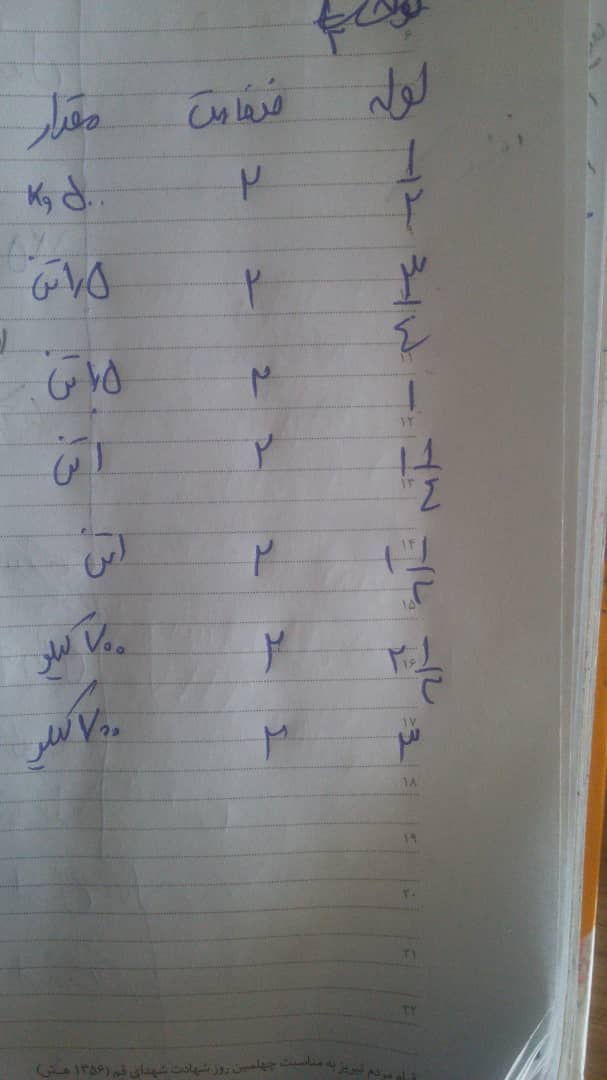 لوله ضخامت مقدار
۱/۲ ۲ ۵۰۰ و k
۳/۴ ۲ ۱/۵ تن
۱ ۲ ۱/۵ تن
۱ ۱/۴ ۲ ۱ تن
۱ ۱/۲ ۲ ۱ تن
۲ ۱/۲ ۳ ۷۰۰ کیلو
۳ ۳ ۷۰۰ کیلو
۱۱
۱۲
۱۳
۱۴
۱۵
۱۶
۱۷
۱۸
۱۹
۲۰
۲۱
۲۲
قیام مردم تبریز به مناسبت چهلمین روز شهادت شهدای قم (۱۳۵۶ هـ.ش)